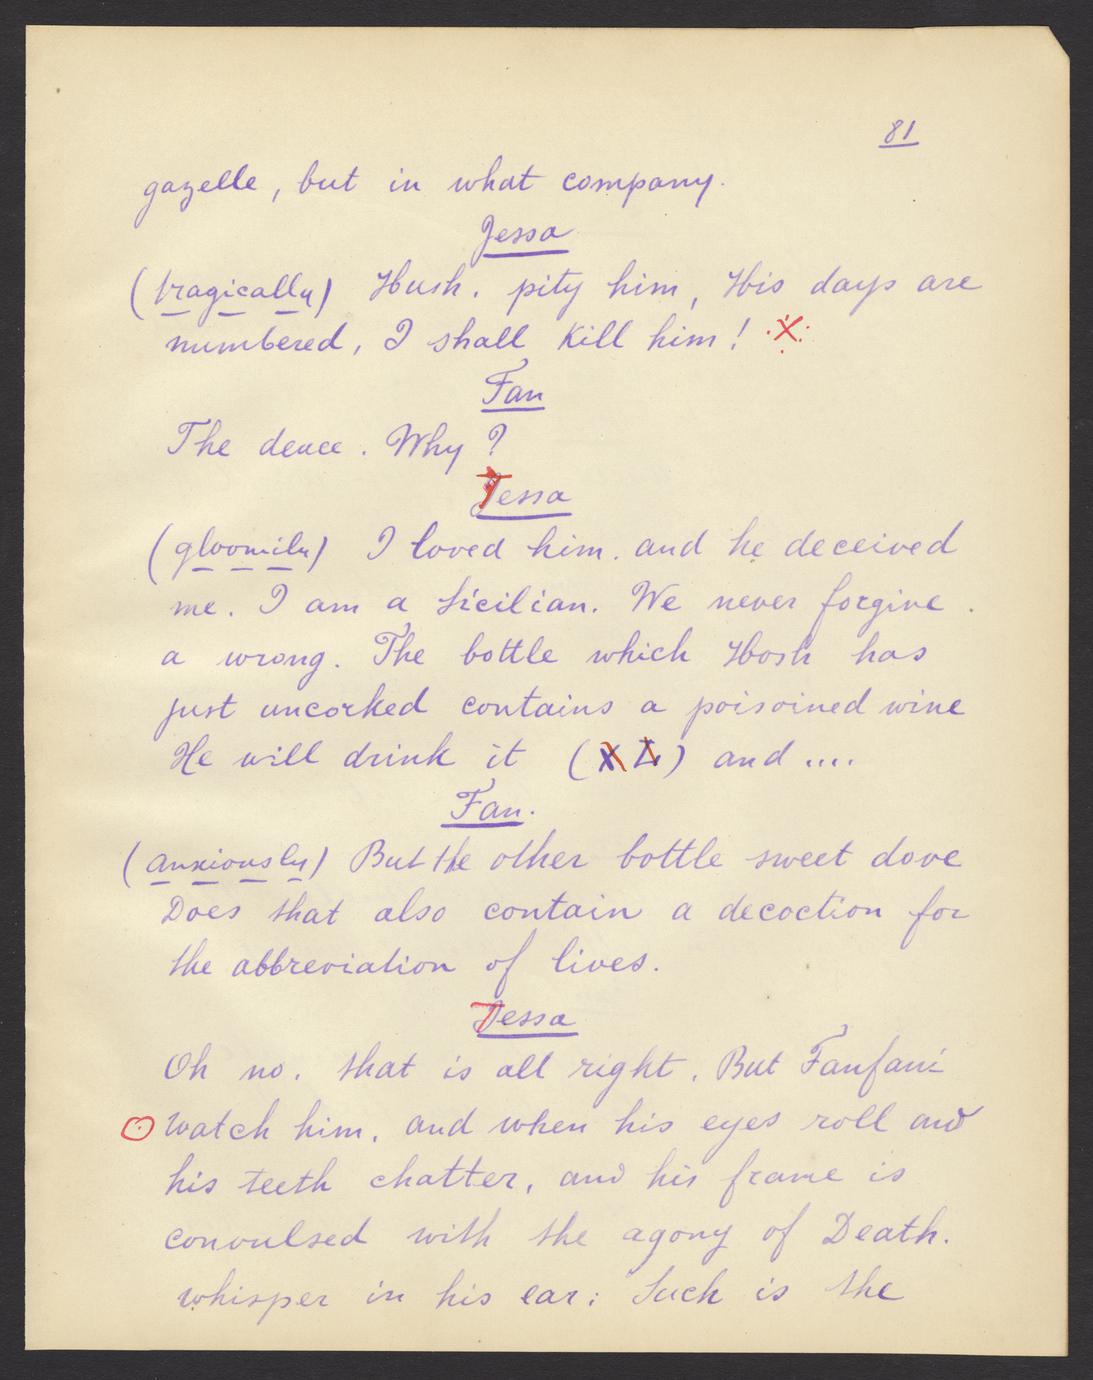 81
gazelle, but in what company.
Jessa
(tragically) Hush. pity him, His days are
numbered, I shall Kill him!
Fan
The deuce. Why?
Tessa
(gloomily) I loved him. and he deceived
me. I am a Sicilian. We never forgive.
a wrong. The bottle which Hosh has
just uncorked contains a poisoined wine
He will drink it (X L) and ....
Fan.
(anxiously) But the other bottle sweet dove
Does that also contain a decoction for
the abbreviation of lives.
Tessa
Oh no. that is all right. But Fanfani
watch him, and when his eyes roll and
his teeth chatter, and his frame is
convulsed with the agony of Death.
whisper in his ear: Such is the